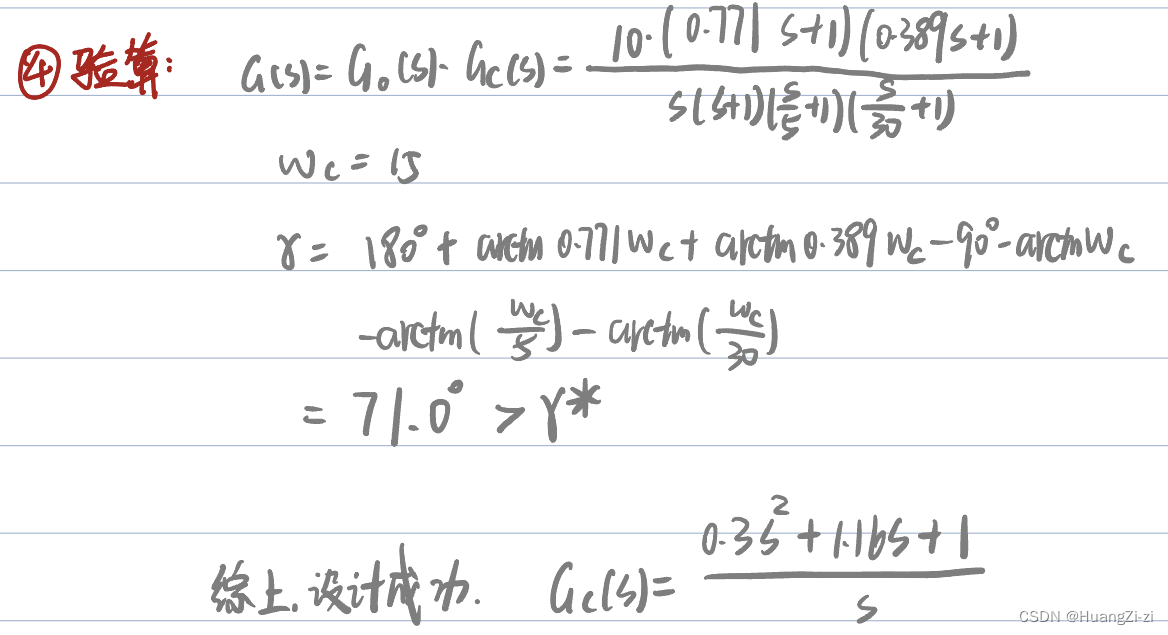 ④ 验算: G(s) = G₀(s)·Gc(s) = 10·(0.771s+1)(0.389s+1) / s(s+1)(s/5+1)(s/30+1)
wc = 15
γ = 180° + arctan 0.771wc + arctan 0.389wc - 90° - arctanwc
-arctan(wc/5) - arctan(wc/30)
= 71.0° > γ*
综上,设计成功. Gc(s) = 0.3s²+1.16s+1 / s
CSDN @HuangZi-zi